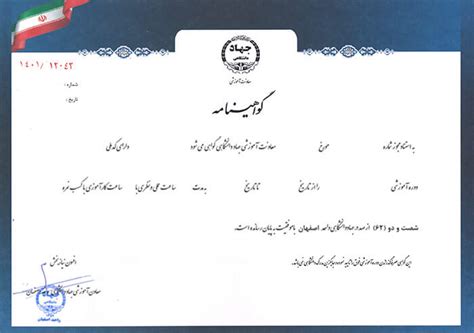 جهاد
دانشگاهی
معاونت آموزشی
۱۴۰۱/۱۲۰۴۳
شماره :
تاریخ :
گواهینامه
به استناد مجوز شماره مورخ معاونت آموزشی جهاد دانشگاهی گواهی می شود دارای کد ملی
دوره آموزشی را از تاریخ تا تاریخ به مدت ساعت عملی و نظری با ساعت کارآموزی با کسب نمره
شصت و دو (۶۲) از صد در جهاد دانشگاهی واحد اصفهان با موفقیت به پایان رسانده است.
این گواهی صرفاً گذراندن دوره آموزشی فوق را تایید نموده و جایگزین مدرک دانشگاهی نمی باشد.
معاون آموزشی جهاد دانشگاهی اصفهان